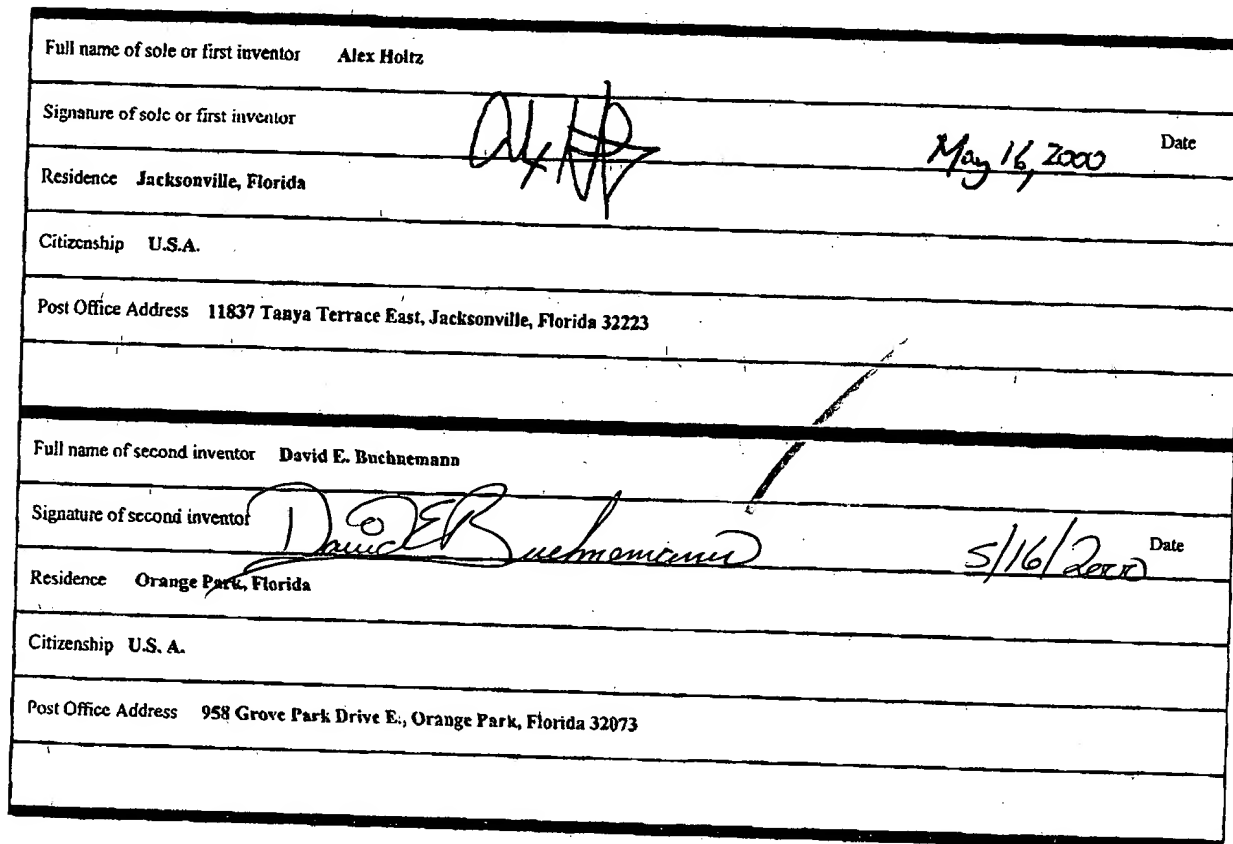 Full name of sole or first inventor Alex Holtz
Signature of sole or first inventor Alex H May 16, 2000 Date
Residence Jacksonville, Florida
Citizenship U.S.A.
Post Office Address 11837 Tanya Terrace East, Jacksonville, Florida 32223
Full name of second inventor David E. Buehnemann
Signature of second inventor David E Buehnemann 5/16/2000 Date
Residence Orange Park, Florida
Citizenship U.S. A.
Post Office Address 958 Grove Park Drive E., Orange Park, Florida 32073